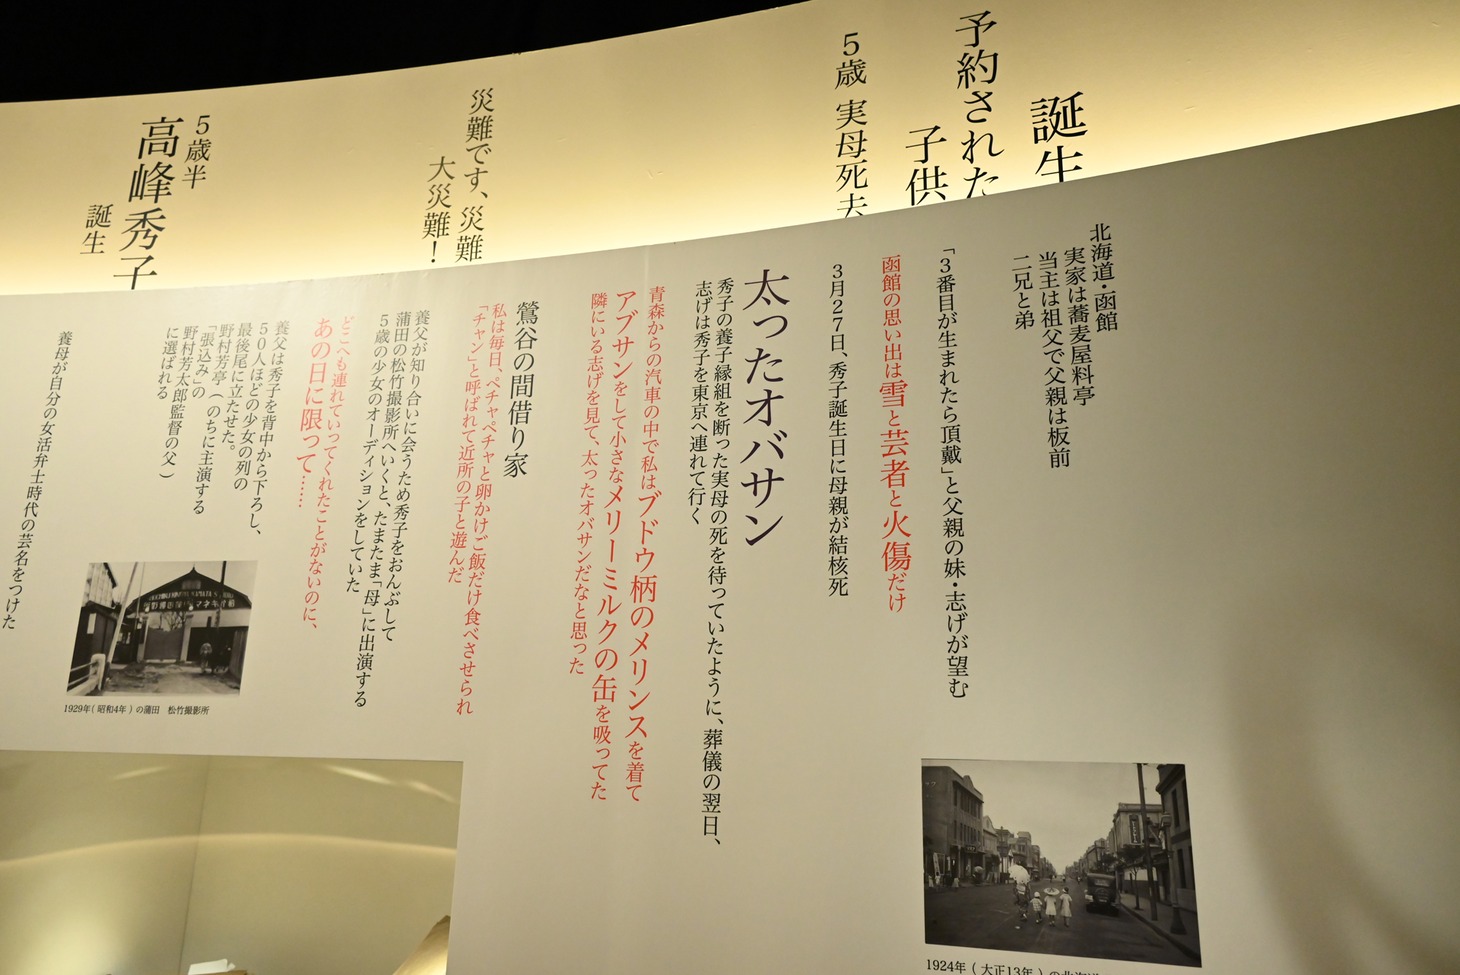 誕生
予約された
子供
5歳 実母死去
災難です、災難
大災難!
5歳半
高峰秀子
誕生
北海道・函館
実家は蕎麦屋料亭
当主は祖父で父親は板前
二兄と弟
「3番目が生まれたら頂戴」と父親の妹・志げが望む
函館の思い出は雪と芸者と火傷だけ
3月27日、秀子誕生日に母親が結核死
太ったオバサン
秀子の養子縁組を断った実母の死を待っていたように、葬儀の翌日、
志げは秀子を東京へ連れて行く
青森からの汽車の中で私はブドウ柄のメリンスを着て
アブサンをして小さなメリーミルクの缶を吸ってた
隣にいる志げを見て、太ったオバサンだなと思った
鶯谷の間借り家
私は毎日、ペチャペチャと卵かけご飯だけ食べさせられ
「チャン」と呼ばれて近所の子と遊んだ
養父が知り合いに会うため秀子をおんぶして
蒲田の松竹撮影所へいくと、たまたま「母」に出演する
5歳の少女のオーディションをしていた
どこへも連れていってくれたことがないのに、
あの日に限って……
養父は秀子を背中から下ろし、
50人ほどの少女の列の
最後尾に立たせた。
野村芳亭(のちに主演する
「張込み」の
野村芳太郎監督の父)
に選ばれる
養母が自分の女活弁士時代の芸名をつけた
1929年(昭和4年)の蒲田 松竹撮影所
1924年(大正13年)の北海